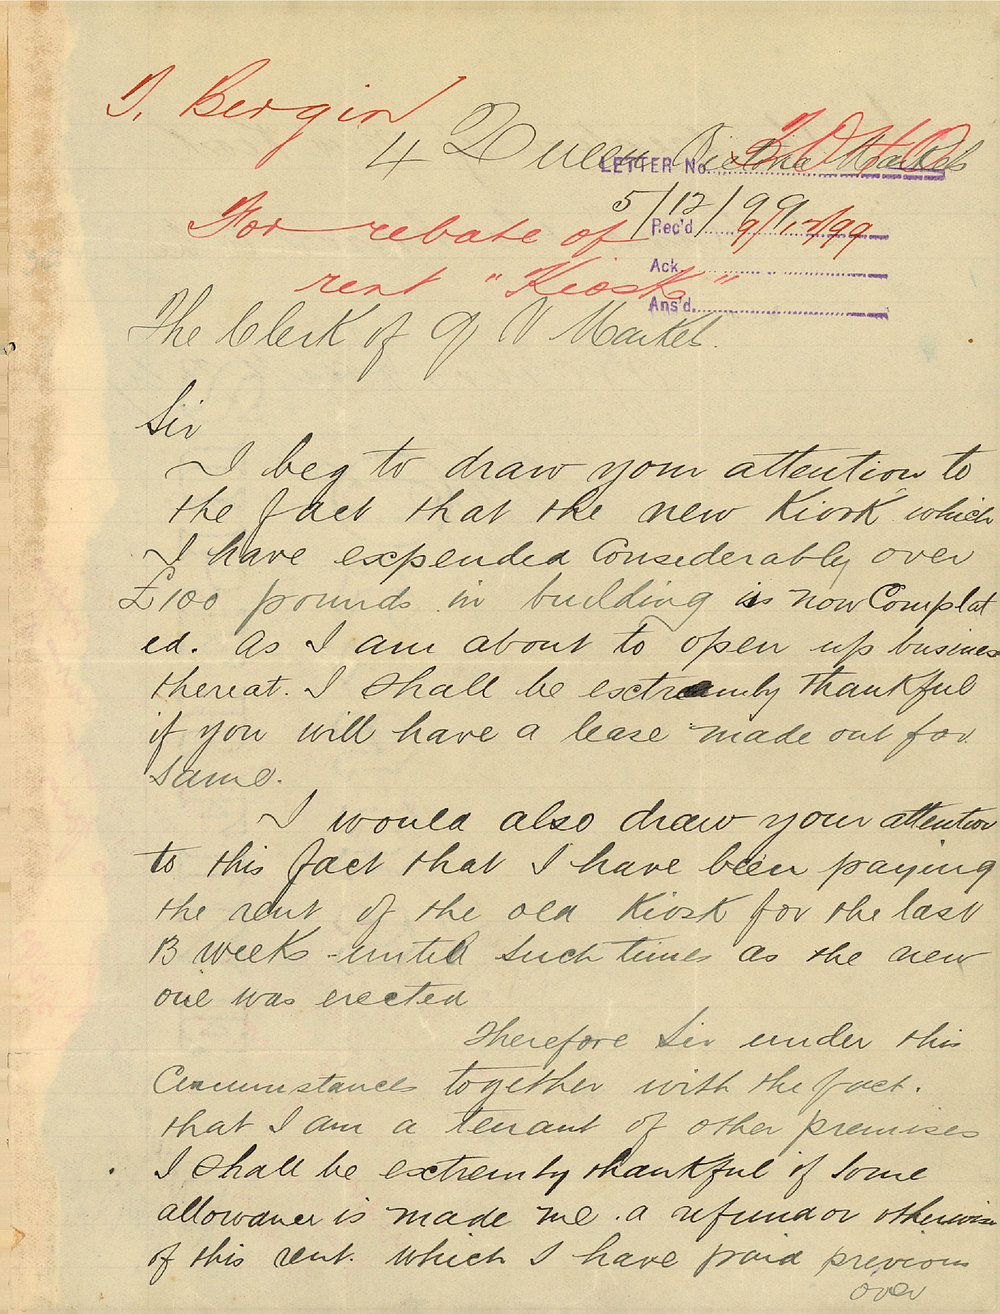 T. Bergin
4 Queen Victoria Markets
LETTER No.
5/12/99
Rec'd 9/12/99
For rebate of
Ack.
rent "Kiosk"
Ans'd.
The Clerk of Q V Market.
Sir
I beg to draw your attention to
the fact that the new Kiosk which
I have expended Considerably over
£100 pounds in building is now Complat
ed. as I am about to open up business
thereat. I shall be exctreamly thankful
if you will have a lease made out for
same.
I would also draw your attention
to this fact that I have been paying
the rent of the old Kiosk for the last
13 weeks - until such times as the new
one was erected
Therefore Sir under this
Circumstances together with the fact.
that I am a tenant of other premises
I shall be exctremly thankful if some
allowance is made me. a refund or otherwise
of this rent. which I have paid previous
over